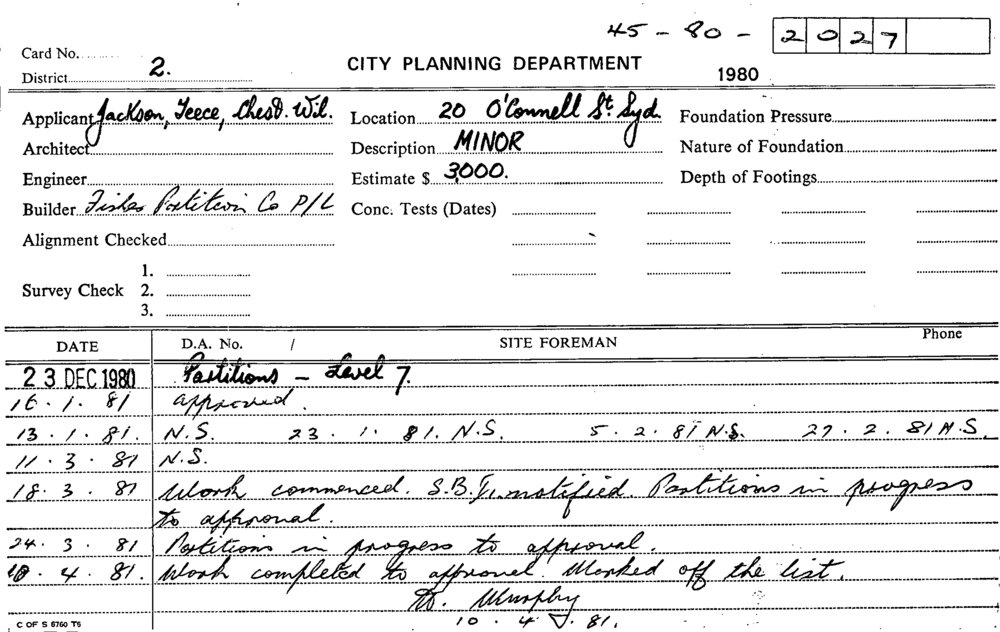 45 - 80 - 2027
Card No.
District 2.
CITY PLANNING DEPARTMENT
1980
Applicant Jackson, Teece, Chest. Wil.
Location 20 O'Connell St. Syd.
Foundation Pressure
Architect
Description MINOR
Nature of Foundation
Engineer
Estimate $ 3,000.
Depth of Footings
Builder Fisher Partition Co P/L
Conc. Tests (Dates)
Alignment Checked
1.
Survey Check 2.
3.
DATE D.A. No. / SITE FOREMAN Phone
23 DEC 1980 Partitions - Level 7.
16 . 1 . 81 approved.
13 . 1 . 81. N.S. 23 . 1 . 81. N.S. 5 . 2 . 81 N.S. 27 . 2 . 81 N.S.
11 . 3 . 81 N.S.
18 . 3 . 81 Work commenced. S.B.I. notified. Partitions in progress
to approval.
24 . 3 . 81 Partitions in progress to approval.
10 . 4 . 81. Work completed to approval. Marked off the list.
Murphy
10 . 4 . 81.
C OF S 6760 T6